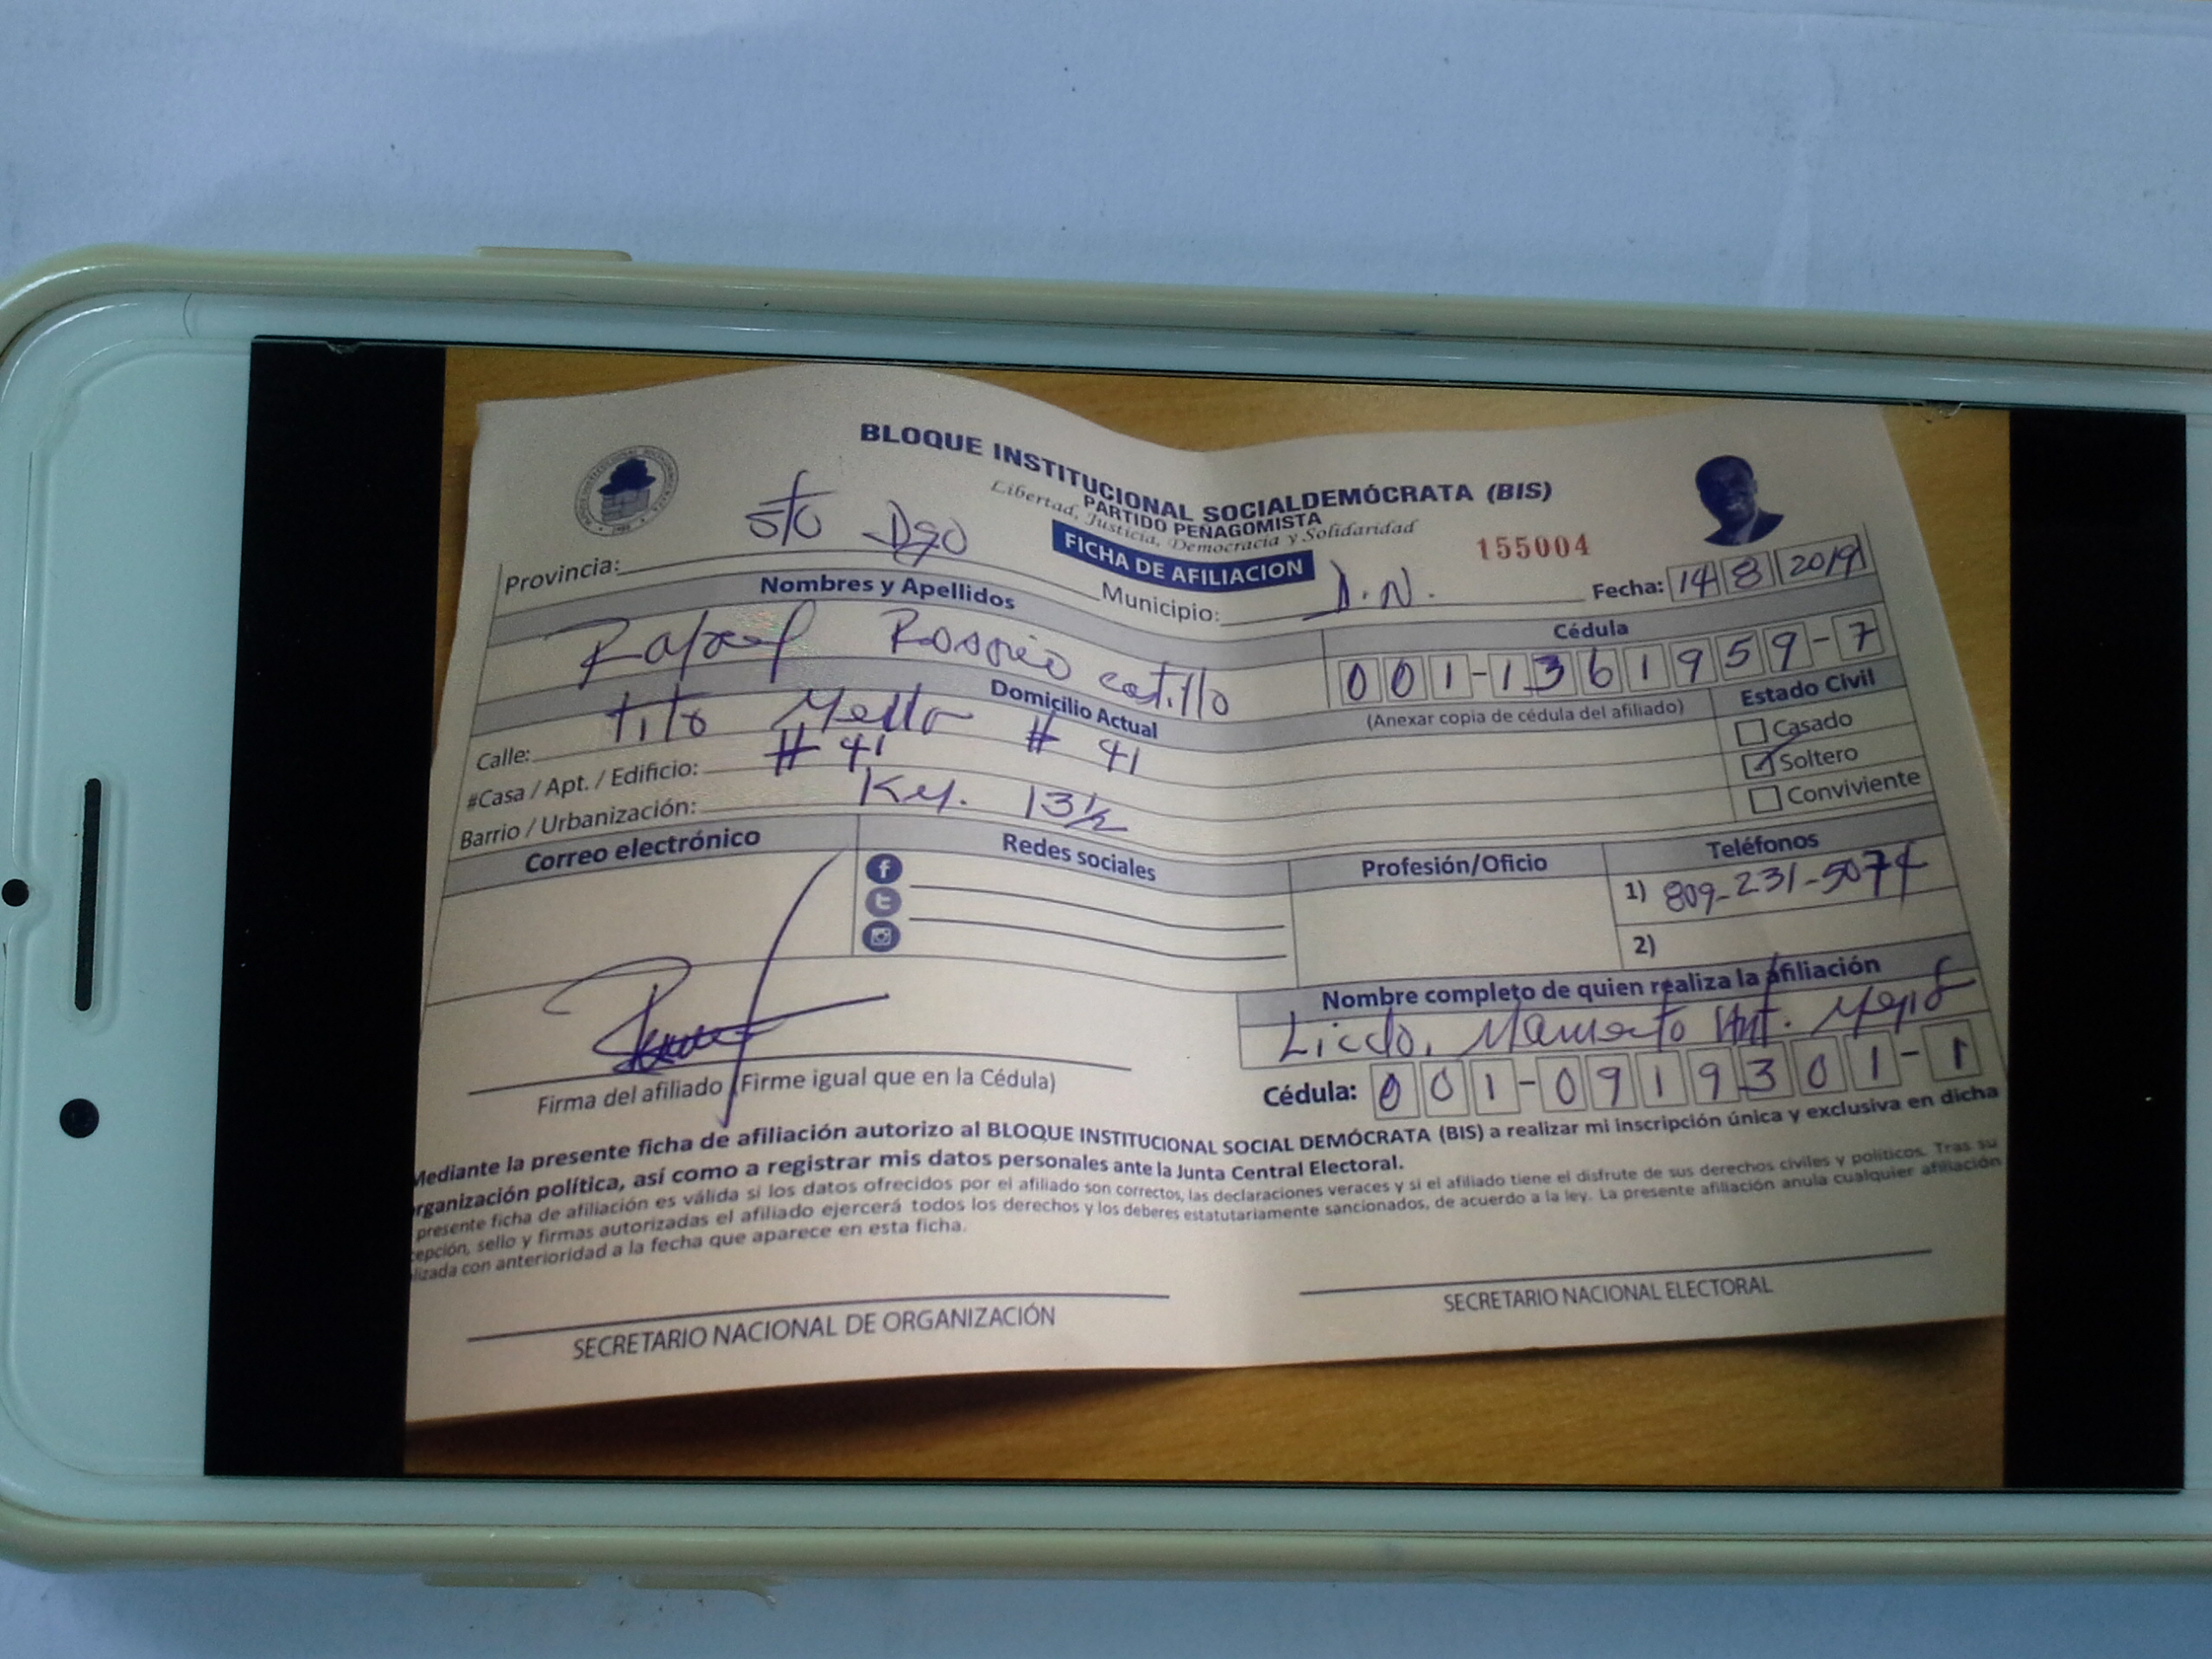 BLOQUE INSTITUCIONAL SOCIALDEMÓCRATA (BIS)
PARTIDO PEÑAGOMISTA
Libertad, Justicia, Democracia y Solidaridad
FICHA DE AFILIACION
155004
Provincia: Sto Dgo Municipio: D.N. Fecha: 14 8 2019
Nombres y Apellidos Cédula
Rafael Rosario Castillo 001-1361959-7
(Anexar copia de cédula del afiliado)
Domicilio Actual Estado Civil
Calle: Tito Mella # 41
#Casa / Apt. / Edificio: # 41
Barrio / Urbanización: Km. 13½
Casado
Soltero
Conviviente
Correo electrónico Redes sociales Profesión/Oficio Teléfonos
1) 809-231-5074
2)
Nombre completo de quien realiza la afiliación
Licdo. Ant.
Cédula: 001-0919301-1
Firma del afiliado (Firme igual que en la Cédula)
Mediante la presente ficha de afiliación autorizo al BLOQUE INSTITUCIONAL SOCIAL DEMÓCRATA (BIS) a realizar mi inscripción única y exclusiva en dicha
rganización política, así como a registrar mis datos personales ante la Junta Central Electoral.
presente ficha de afiliación es válida si los datos ofrecidos por el afiliado son correctos, las declaraciones veraces y si el afiliado tiene el disfrute de sus derechos civiles y políticos. Tras su
cepción, sello y firmas autorizadas el afiliado ejercerá todos los derechos y los deberes estatutariamente sancionados, de acuerdo a la ley. La presente afiliación anula cualquier afiliación
lizada con anterioridad a la fecha que aparece en esta ficha.
SECRETARIO NACIONAL DE ORGANIZACIÓN SECRETARIO NACIONAL ELECTORAL